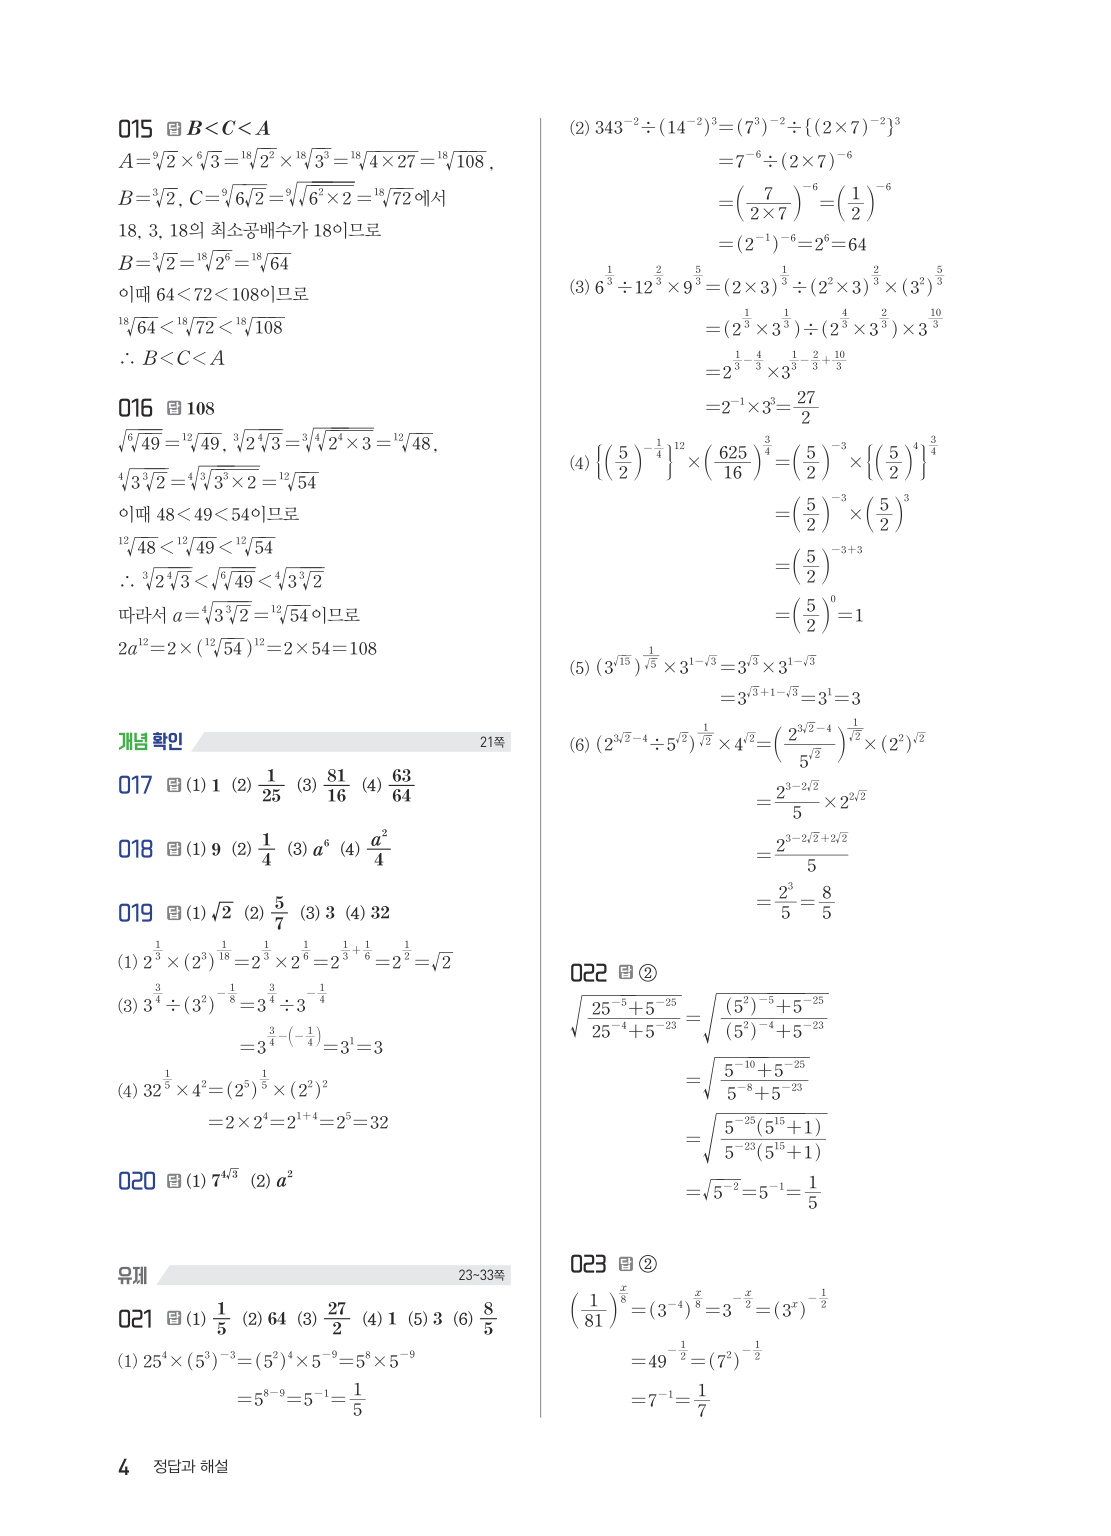 015 답 B<C<A
A=⁹√2×⁶√3=¹⁸√(2²)×¹⁸√(3³)=¹⁸√(4×27)=¹⁸√108,
B=³√2, C=⁹√(6√2)=⁹√(√(6²×2))=¹⁸√72에서
18, 3, 18의 최소공배수가 18이므로
B=³√2=¹⁸√(2⁶)=¹⁸√64
이때 64<72<108이므로
¹⁸√64<¹⁸√72<¹⁸√108
∴ B<C<A
016 답 108
√(⁶√49)=¹²√49, ³√(2⁴√3)=³√(⁴√(2⁴×3))=¹²√48,
⁴√(3³√2)=⁴√(³√(3³×2))=¹²√54
이때 48<49<54이므로
¹²√48<¹²√49<¹²√54
∴ ³√(2⁴√3)<√(⁶√49)<⁴√(3³√2)
따라서 a=⁴√(3³√2)=¹²√54이므로
2a¹²=2×(¹²√54)¹²=2×54=108
개념 확인 21쪽
017 답 (1) 1 (2) 1/25 (3) 81/16 (4) 63/64
018 답 (1) 9 (2) 1/4 (3) a⁶ (4) a²/4
019 답 (1) √2 (2) 5/7 (3) 3 (4) 32
(1) 2^(1/3)×(2³)^(1/18)=2^(1/3)×2^(1/6)=2^(1/3+1/6)=2^(1/2)=√2
(3) 3^(3/4)÷(3²)^(-1/8)=3^(3/4)÷3^(-1/4)
=3^(3/4-(-1/4))=3¹=3
(4) 32^(1/5)×4²=(2⁵)^(1/5)×(2²)²
=2×2⁴=2^(1+4)=2⁵=32
020 답 (1) 7^(4√3) (2) a²
유제 23~33쪽
021 답 (1) 1/5 (2) 64 (3) 27/2 (4) 1 (5) 3 (6) 8/5
(1) 25⁴×(5³)^(-3)=(5²)⁴×5^(-9)=5⁸×5^(-9)
=5^(8-9)=5^(-1)=1/5
(2) 343^(-2)÷(14^(-2))³=(7³)^(-2)÷{(2×7)^(-2)}³
=7^(-6)÷(2×7)^(-6)
=(7/(2×7))^(-6)=(1/2)^(-6)
=(2^(-1))^(-6)=2⁶=64
(3) 6^(1/3)÷12^(2/3)×9^(5/3)=(2×3)^(1/3)÷(2²×3)^(2/3)×(3²)^(5/3)
=(2^(1/3)×3^(1/3))÷(2^(4/3)×3^(2/3))×3^(10/3)
=2^(1/3-4/3)×3^(1/3-2/3+10/3)
=2^(-1)×3³=27/2
(4) {(5/2)^(-1/4)}^12×(625/16)^(3/4)=(5/2)^(-3)×{(5/2)⁴}^(3/4)
=(5/2)^(-3)×(5/2)³
=(5/2)^(-3+3)
=(5/2)⁰=1
(5) (3^(√15))^(1/√5)×3^(1-√3)=3^(√3)×3^(1-√3)
=3^(√3+1-√3)=3¹=3
(6) (2^(3√2-4)÷5^(√2))^(1/√2)×4^(√2)=(2^(3√2-4)/5^(√2))^(1/√2)×(2²)^(√2)
=2^(3-2√2)/5×2^(2√2)
=2^(3-2√2+2√2)/5
=2³/5=8/5
022 답 ②
√((25^(-5)+5^(-25))/(25^(-4)+5^(-23)))=√(((5²)^(-5)+5^(-25))/((5²)^(-4)+5^(-23)))
=√((5^(-10)+5^(-25))/(5^(-8)+5^(-23)))
=√(5^(-25)(5^15+1)/(5^(-23)(5^15+1)))
=√(5^(-2))=5^(-1)=1/5
023 답 ②
(1/81)^(x/8)=(3^(-4))^(x/8)=3^(-x/2)=(3^x)^(-1/2)
=49^(-1/2)=(7²)^(-1/2)
=7^(-1)=1/7
4 정답과 해설